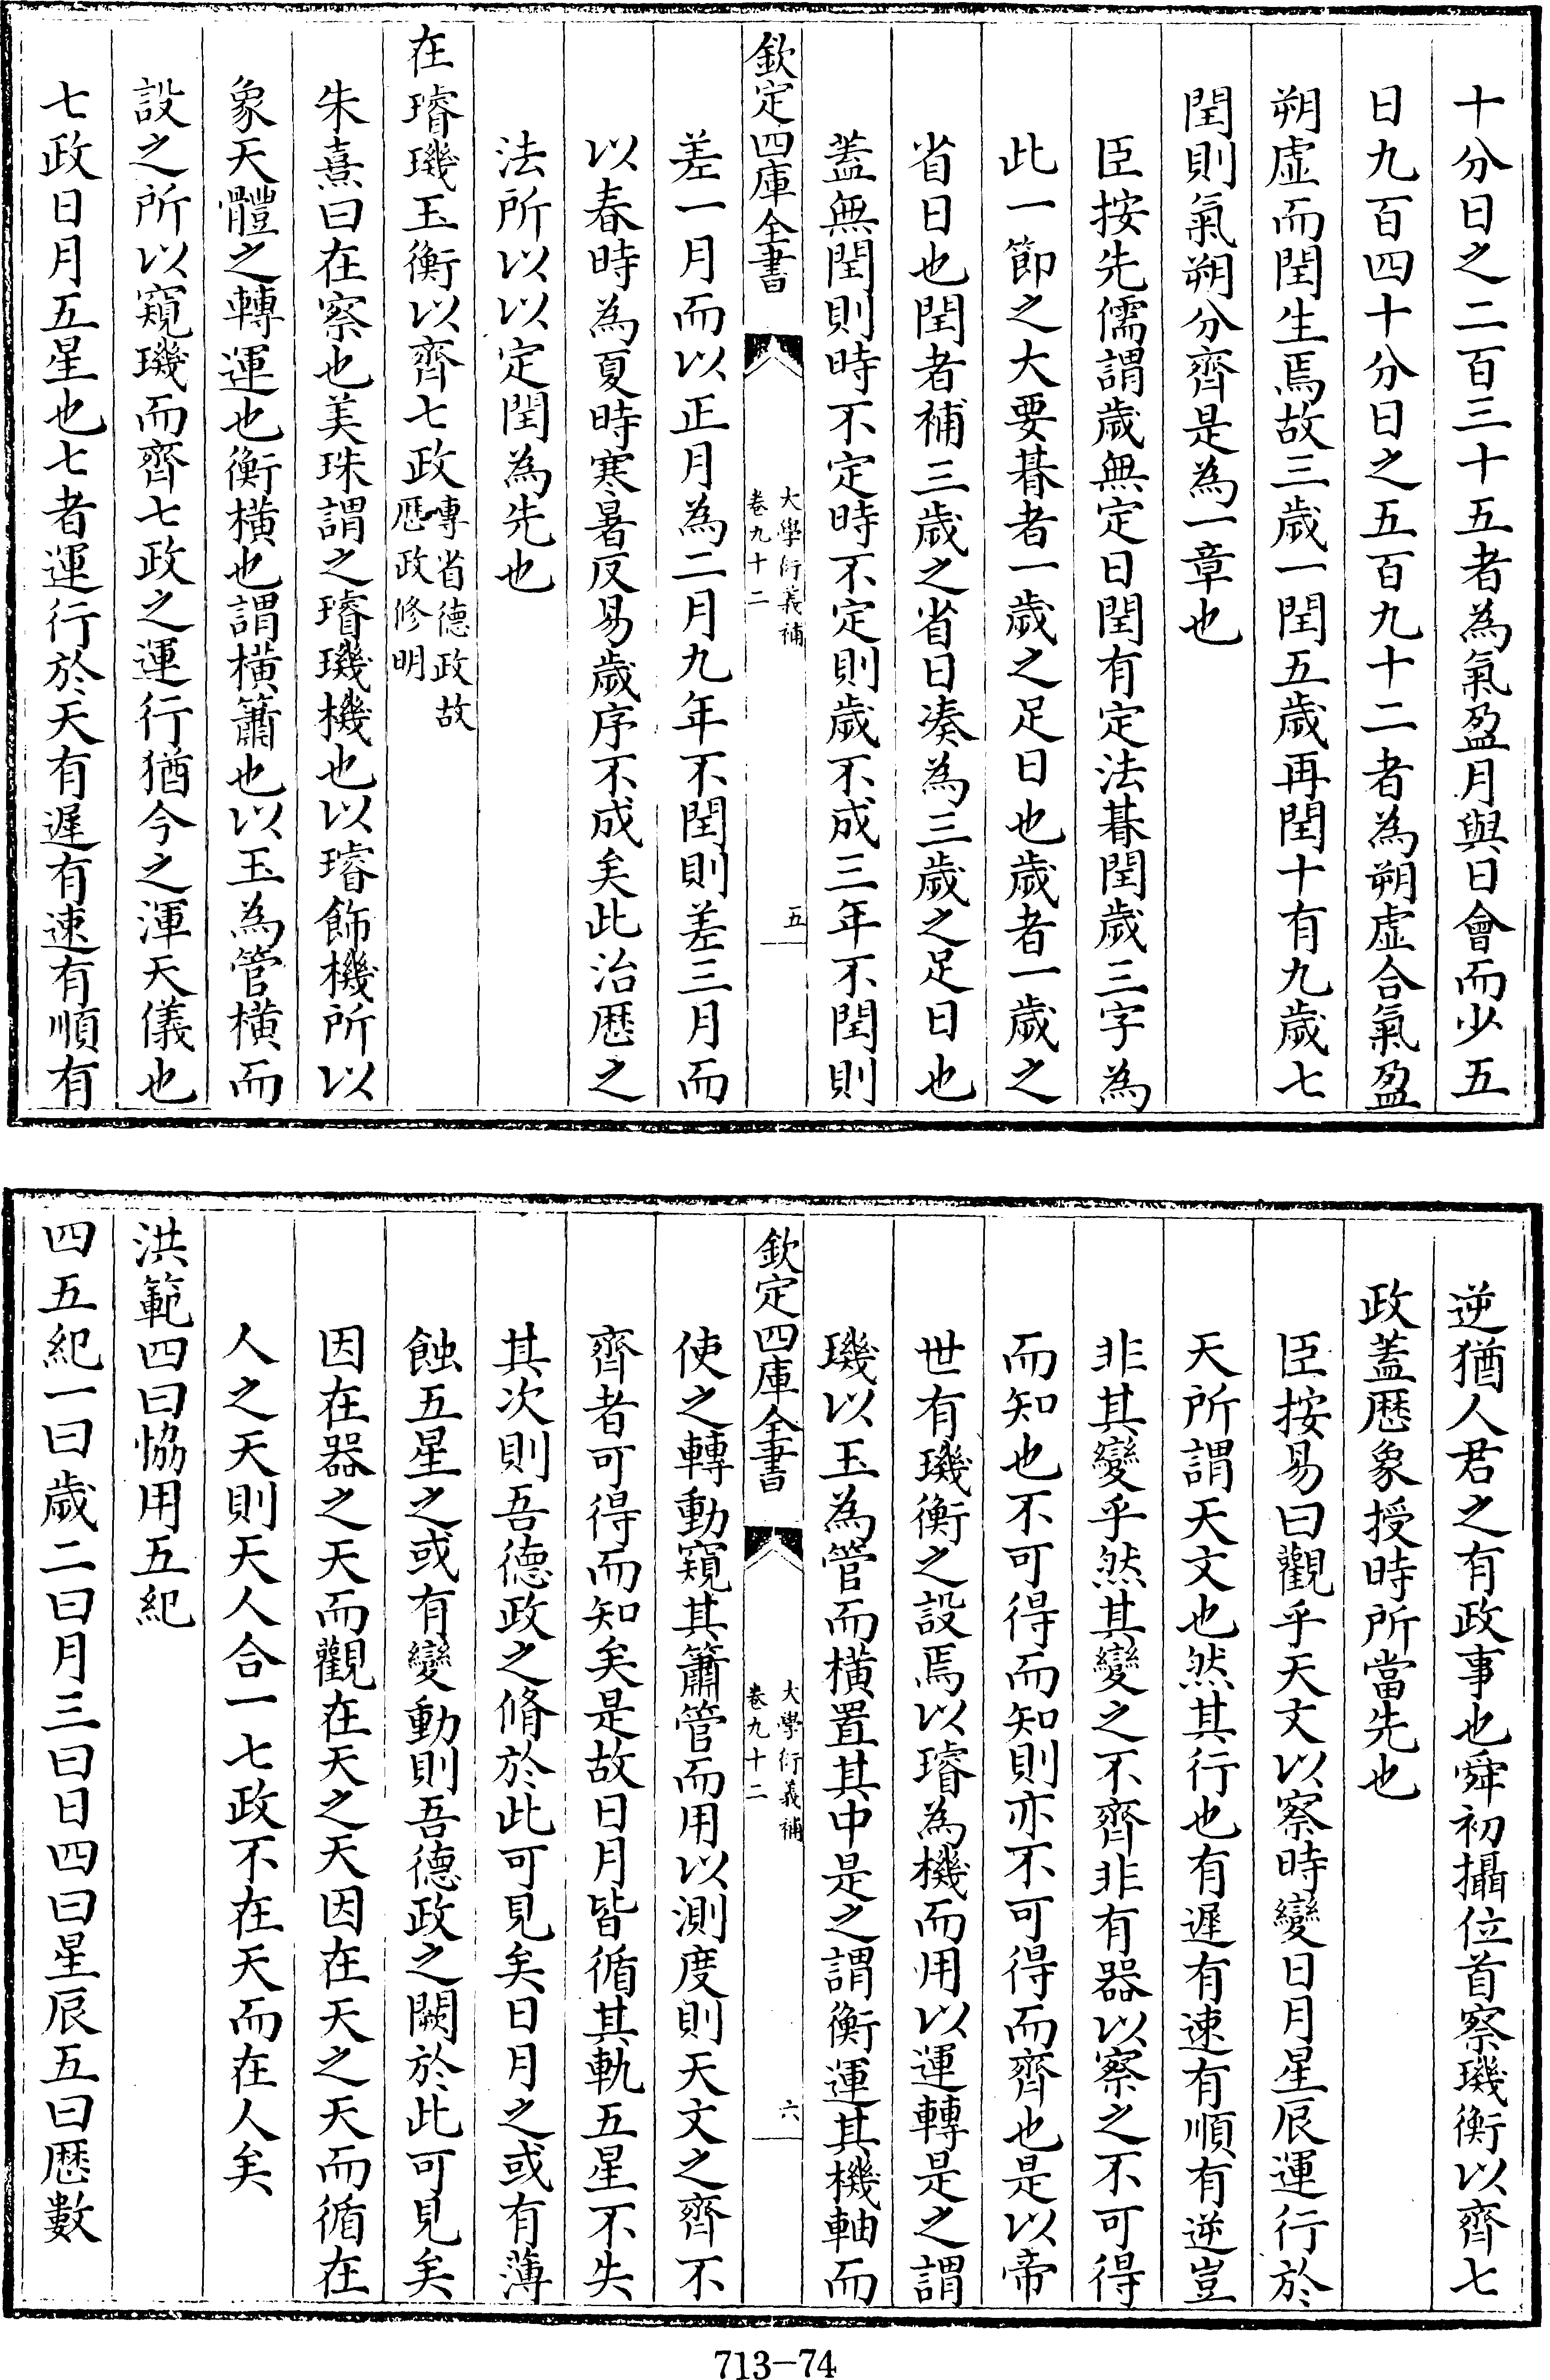 十分日之二百三十五者為氣盈月與日會而少五
日九百四十分日之五百九十二者為朔虛合氣盈
朔虛而閏生焉故三歲一閏五歲再閏十有九歲七
閏則氣朔分齊是為一章也
臣按先儒謂歲無定日閏有定法朞閏歲三字為
此一節之大要朞者一歲之足日也歲者一歲之
省日也閏者補三歲之省日湊為三歲之足日也
蓋無閏則時不定時不定則歲不成三年不閏則
欽定四庫全書
大學衍義補
卷九十二
五
差一月而以正月為二月九年不閏則差三月而
以春時為夏時寒暑反易歲序不成矣此治厯之
法所以以定閏為先也
在璿璣玉衡以齊七政專省德政故
厯政修明
朱熹曰在察也美珠謂之璿璣機也以璿飾機所以
象天體之轉運也衡橫也謂橫簫也以玉為管橫而
設之所以窺璣而齊七政之運行猶今之渾天儀也
七政日月五星也七者運行於天有遲有速有順有
逆猶人君之有政事也舜初攝位首察璣衡以齊七
政蓋厯象授時所當先也
臣按易曰觀乎天文以察時變日月星辰運行於
天所謂天文也然其行也有遲有速有順有逆豈
非其變乎然其變之不齊非有器以察之不可得
而知也不可得而知則亦不可得而齊也是以帝
世有璣衡之設焉以璿為機而用以運轉是之謂
璣以玉為管而橫置其中是之謂衡運其機軸而
欽定四庫全書
大學衍義補
卷九十二
六
使之轉動窺其簫管而用以測度則天文之齊不
齊者可得而知矣是故日月皆循其軌五星不失
其次則吾德政之脩於此可見矣日月之或有薄
蝕五星之或有變動則吾德政之闕於此可見矣
因在器之天而觀在天之天因在天之天而循在
人之天則天人合一七政不在天而在人矣
洪範四曰恊用五紀
四五紀一曰歲二曰月三曰日四曰星辰五曰厯數
713-74